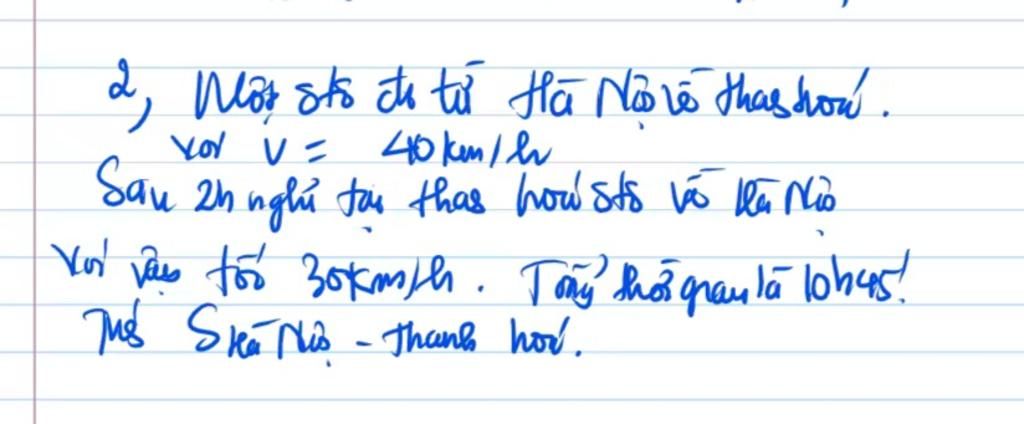 2, Một ô tô đi từ Hà Nội về Thanh hoá.
với v = 40km/h
Sau 2h nghỉ tại thanh hoá ô tô về Hà Nội
Với vận tốc 30km/h. Tổng thời gian là 10h45'.
Tính S Hà Nội - Thanh hoá.